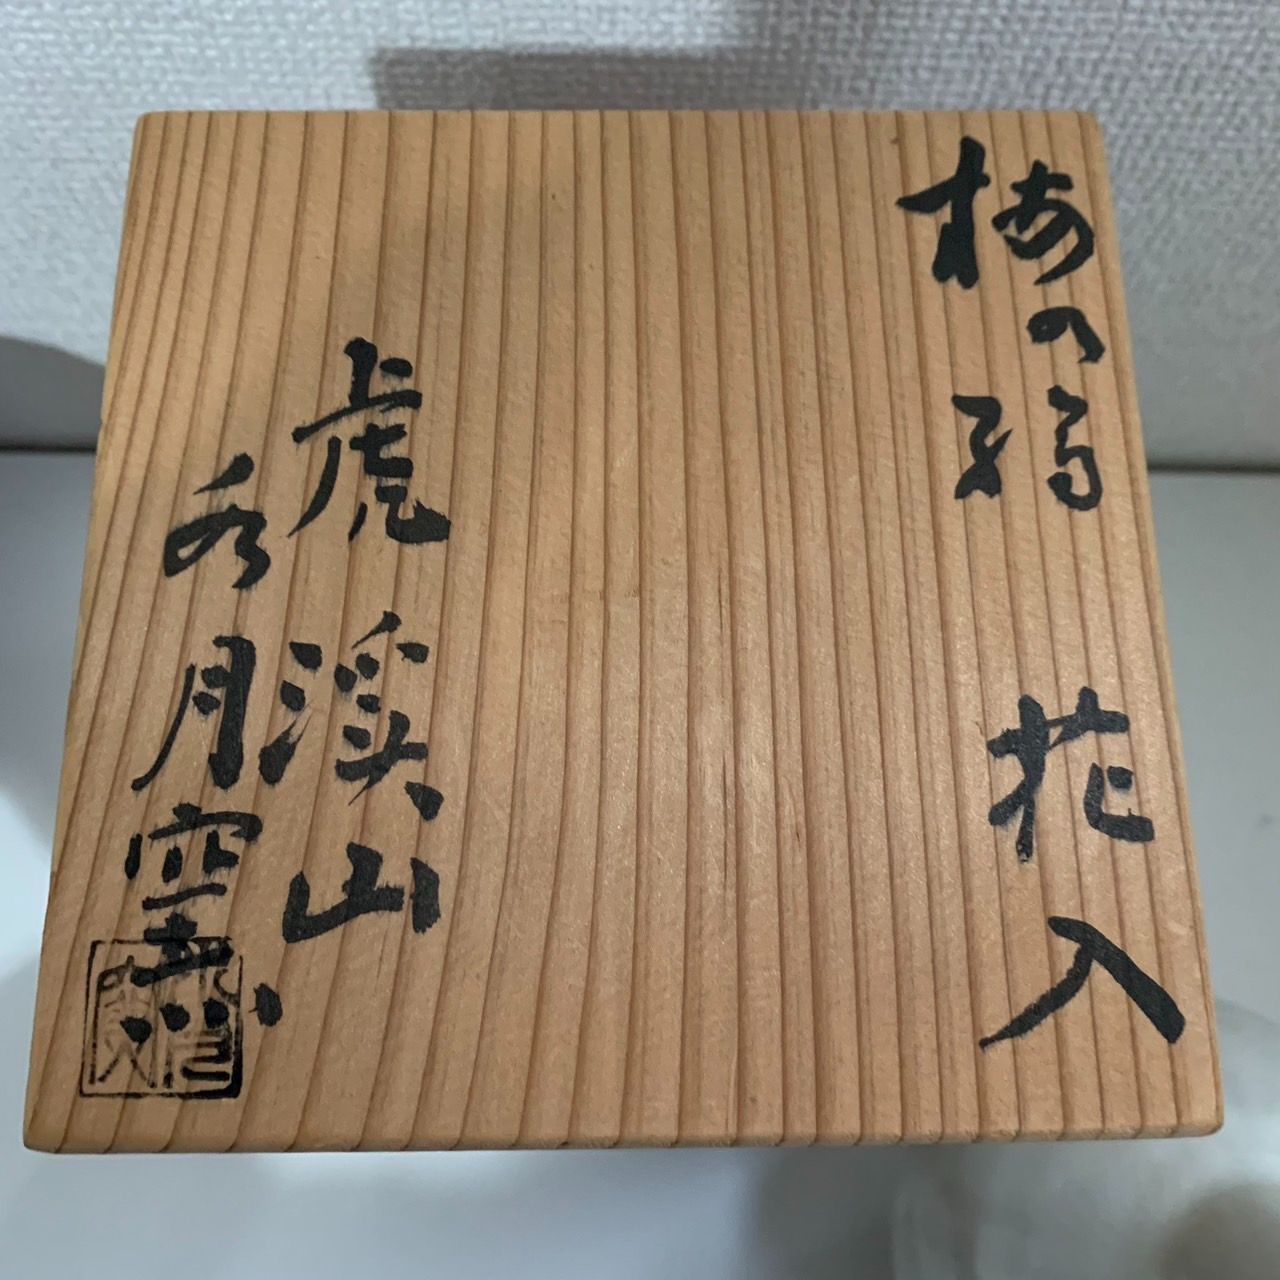 梅の絵 花入
虎渓山
水月窯